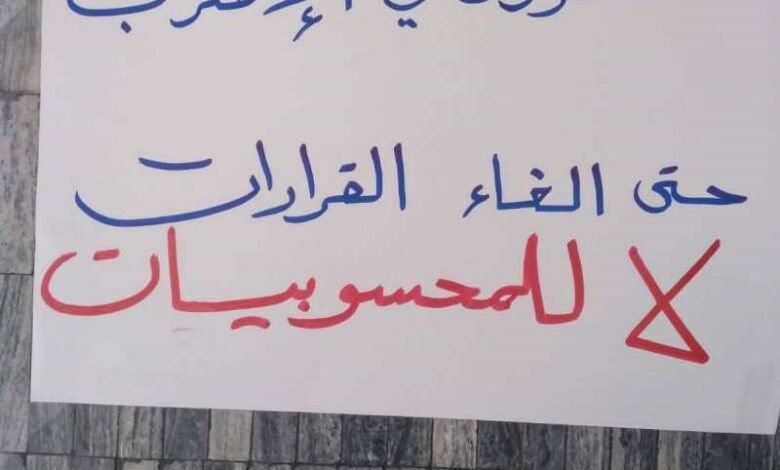 في الإضراب
حتى الغاء القرارات
لا للمحسوبيات